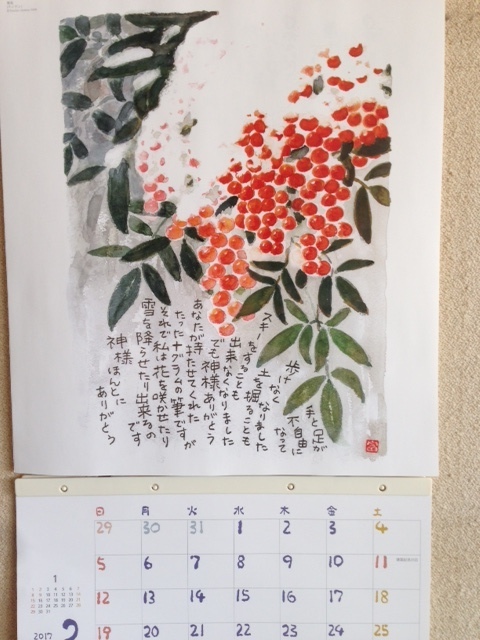 手と足が
不自由になって
歩けなくなりました
土を掘ることも
スキーをすることも
出来なくなりました
でも神様ありがとう
あなたが持たせてくれた
たった十グラムの筆ですが
それで私は花を咲かせたり
雪を降らせたり出来るのです
神様ほんとに
ありがとう
日 月 火 水 木 金 土
29 30 31 1 2 3 4
5 6 7 8 9 10 11
12 13 14 15 16 17 18
19 20 21 22 23 24 25
1
2017
2